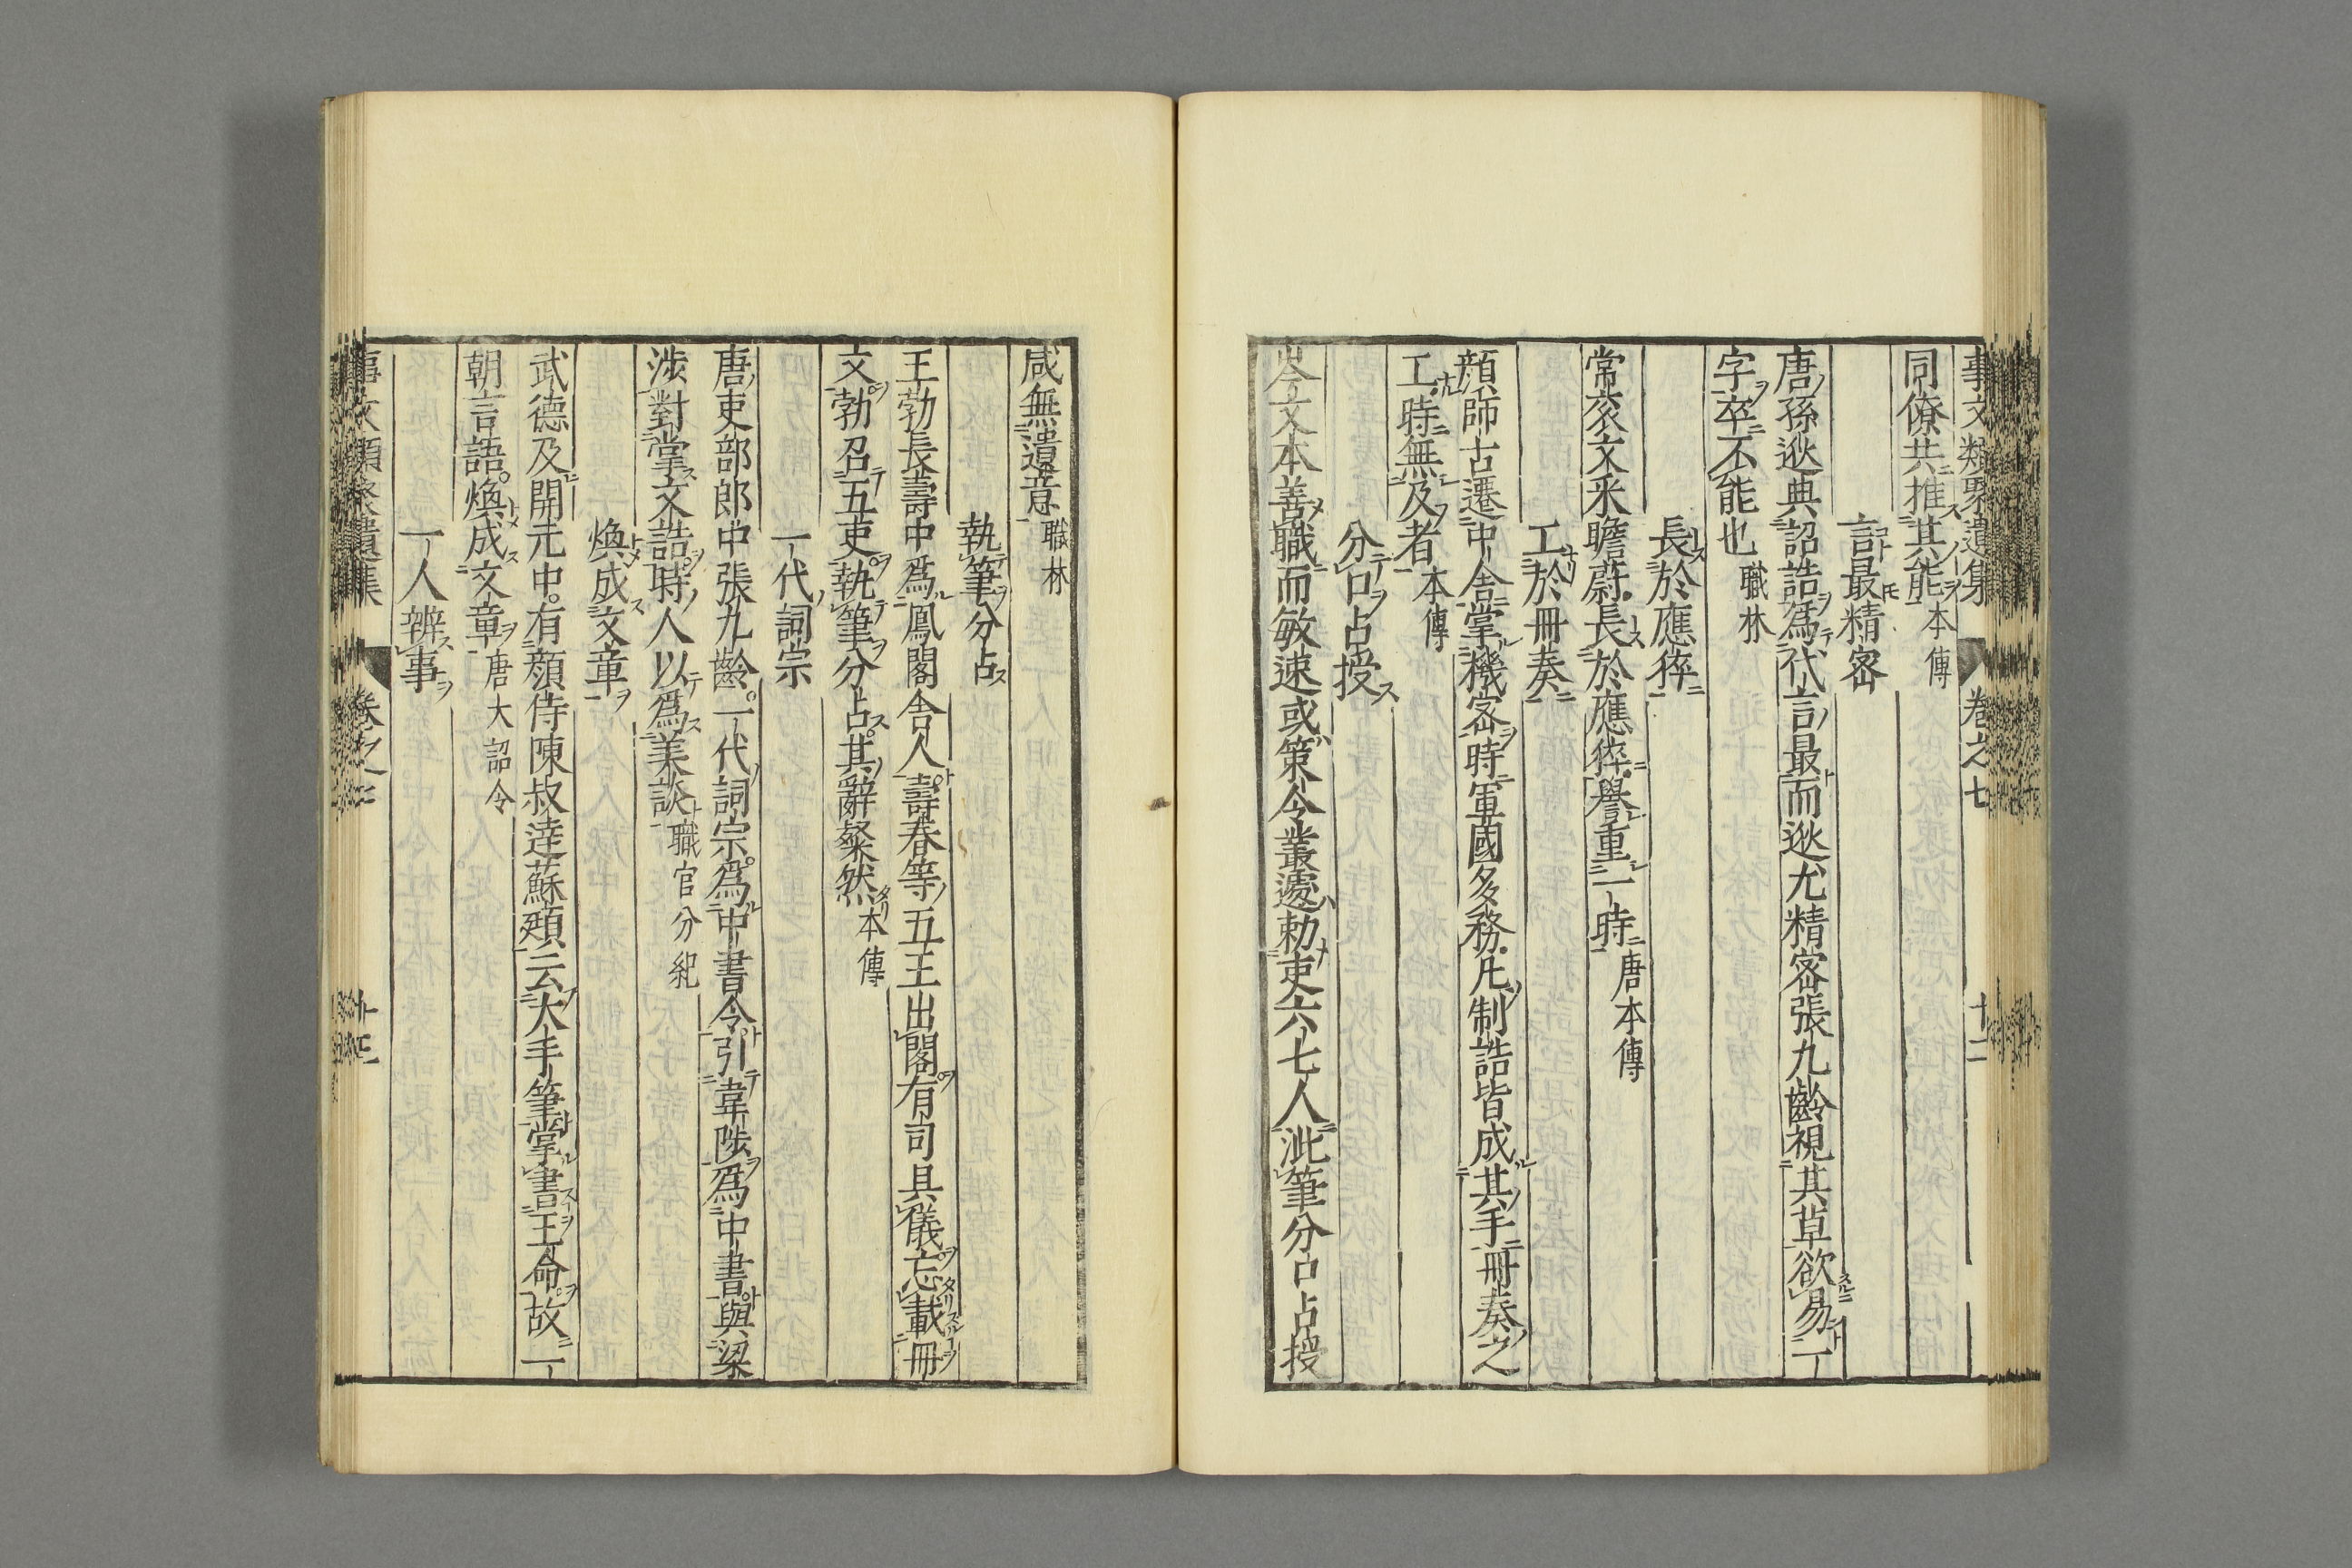 事文類聚遺集 卷之七 十二
同僚共推其能本傳
言最精宻
唐孫逖典詔誥爲代言最而逖尤精宻張九齡視其草欲易一
字卒不能也職林
長於應猝
常衮文采贍蔚長於應猝譽重一時唐本傳
工於冊奏
顔師古遷中舎掌機宻時軍國多務凡制誥皆成其手冊奏之
工時無及者本傳
分口占授
岑文本善職而敏速或策令叢遽勅吏六七人泚筆分口占授
咸無遺意職林
執筆分占
王勃長壽中爲鳳閣舎人壽春等五王出閣有司具儀忘載冊
文勃召五吏執筆分占其辭粲然本傳
一代詞宗
唐吏部郎中張九齡一代詞宗爲中書令引韋陟爲中書與梁
渉對掌文誥時人以爲美談職官分紀
煥成文章
武德及開元中有顔侍陳叔逹蘇頲云大手筆掌書王命故一
朝言語煥成文章唐大詔令
一人辨事